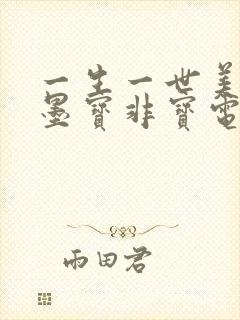 一生一世美
墨寶非寶電
雨田君